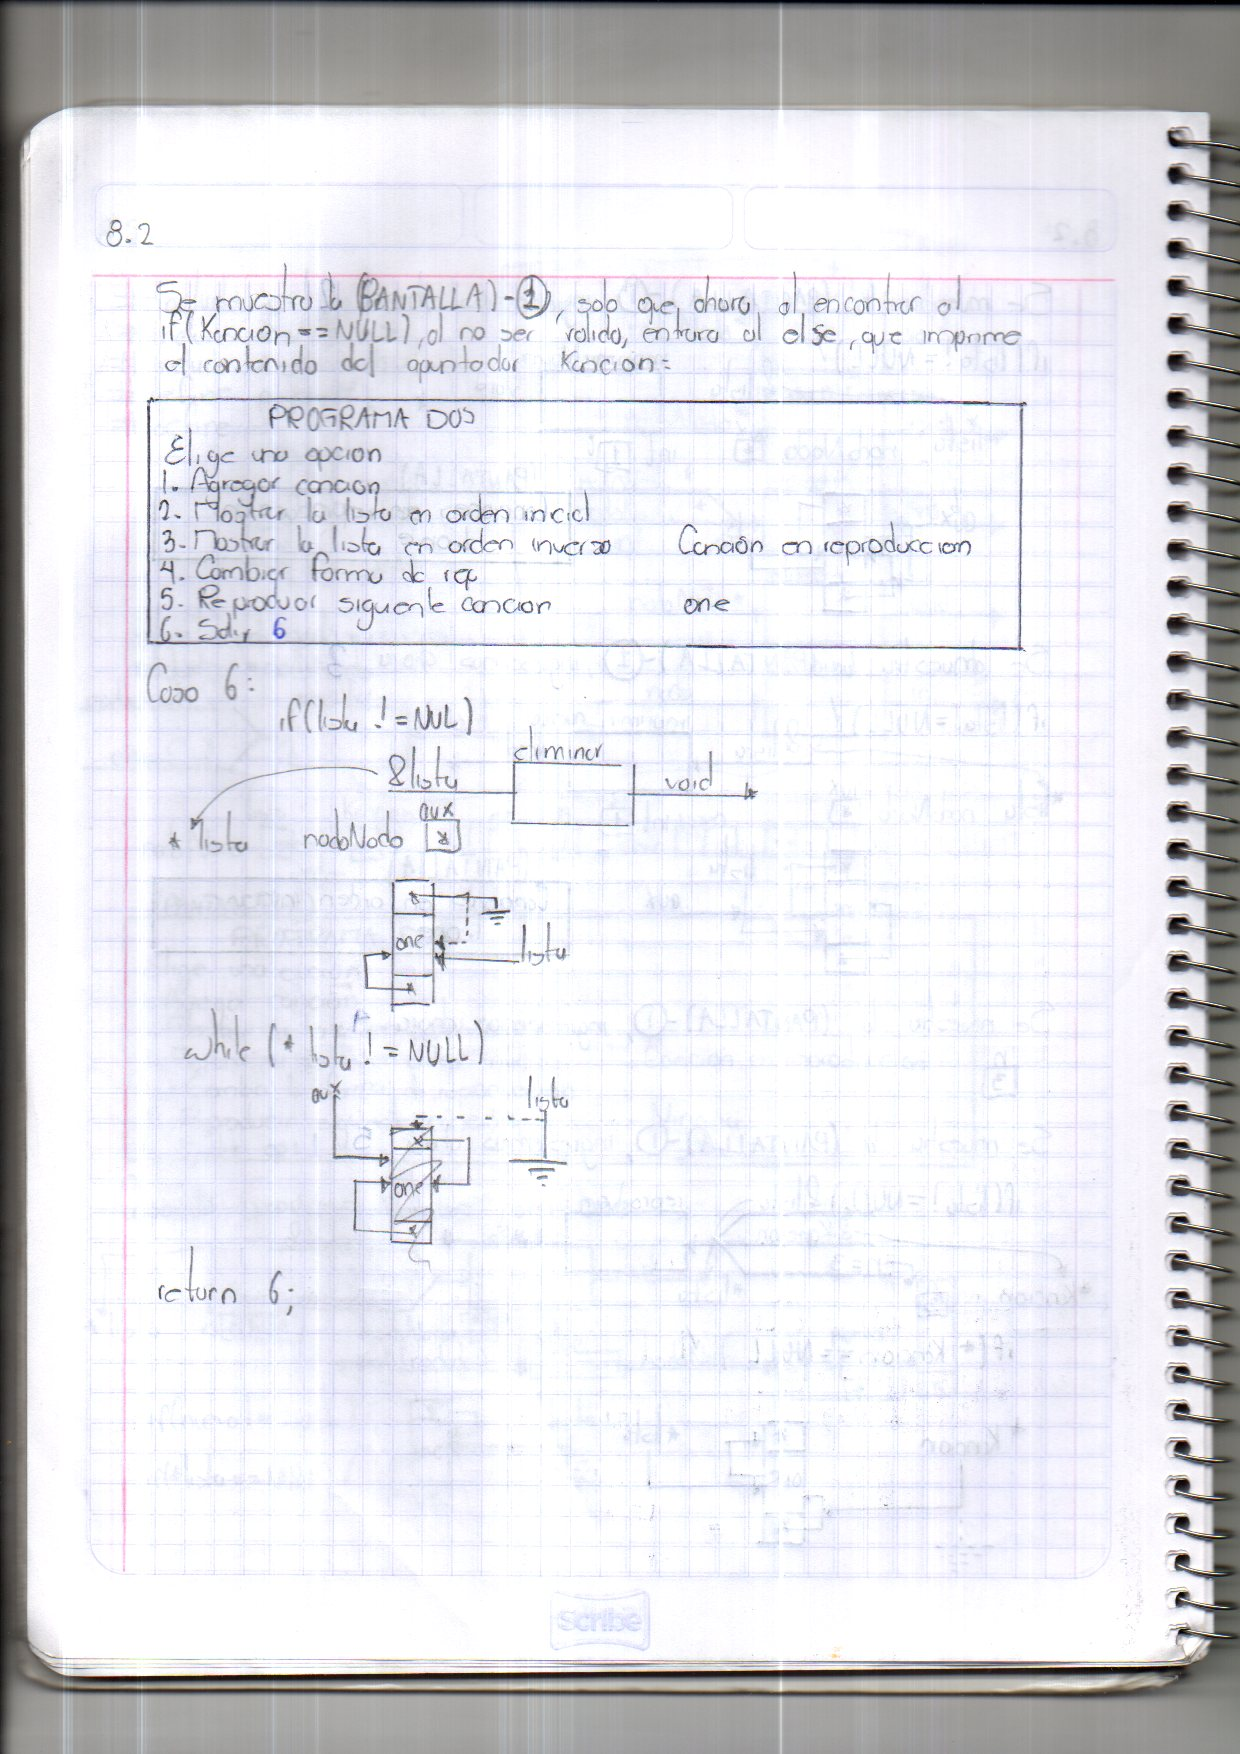 8.2
Se muestra la (PANTALLA)-1, solo que ahora, al encontrar al
if(Kancion==NULL), al no ser valido, entrara al else, que imprime
el contenido del apuntador Kancion=
PROGRAMA DOS
Elige una opcion
1. Agregar cancion
2. Mostrar la lista en orden inicial
3. Mostrar la lista en orden inverso Canción en reproduccion
4. Cambiar forma de rep
5. Reproducir siguente cancion one
6. Salir 6
Caso 6:
if(lista != NUL)
eliminar
&lista void
aux
* lista nodoNodo *
one lista
while (* lista != NULL)
aux lista
one
return 6;
Scribe